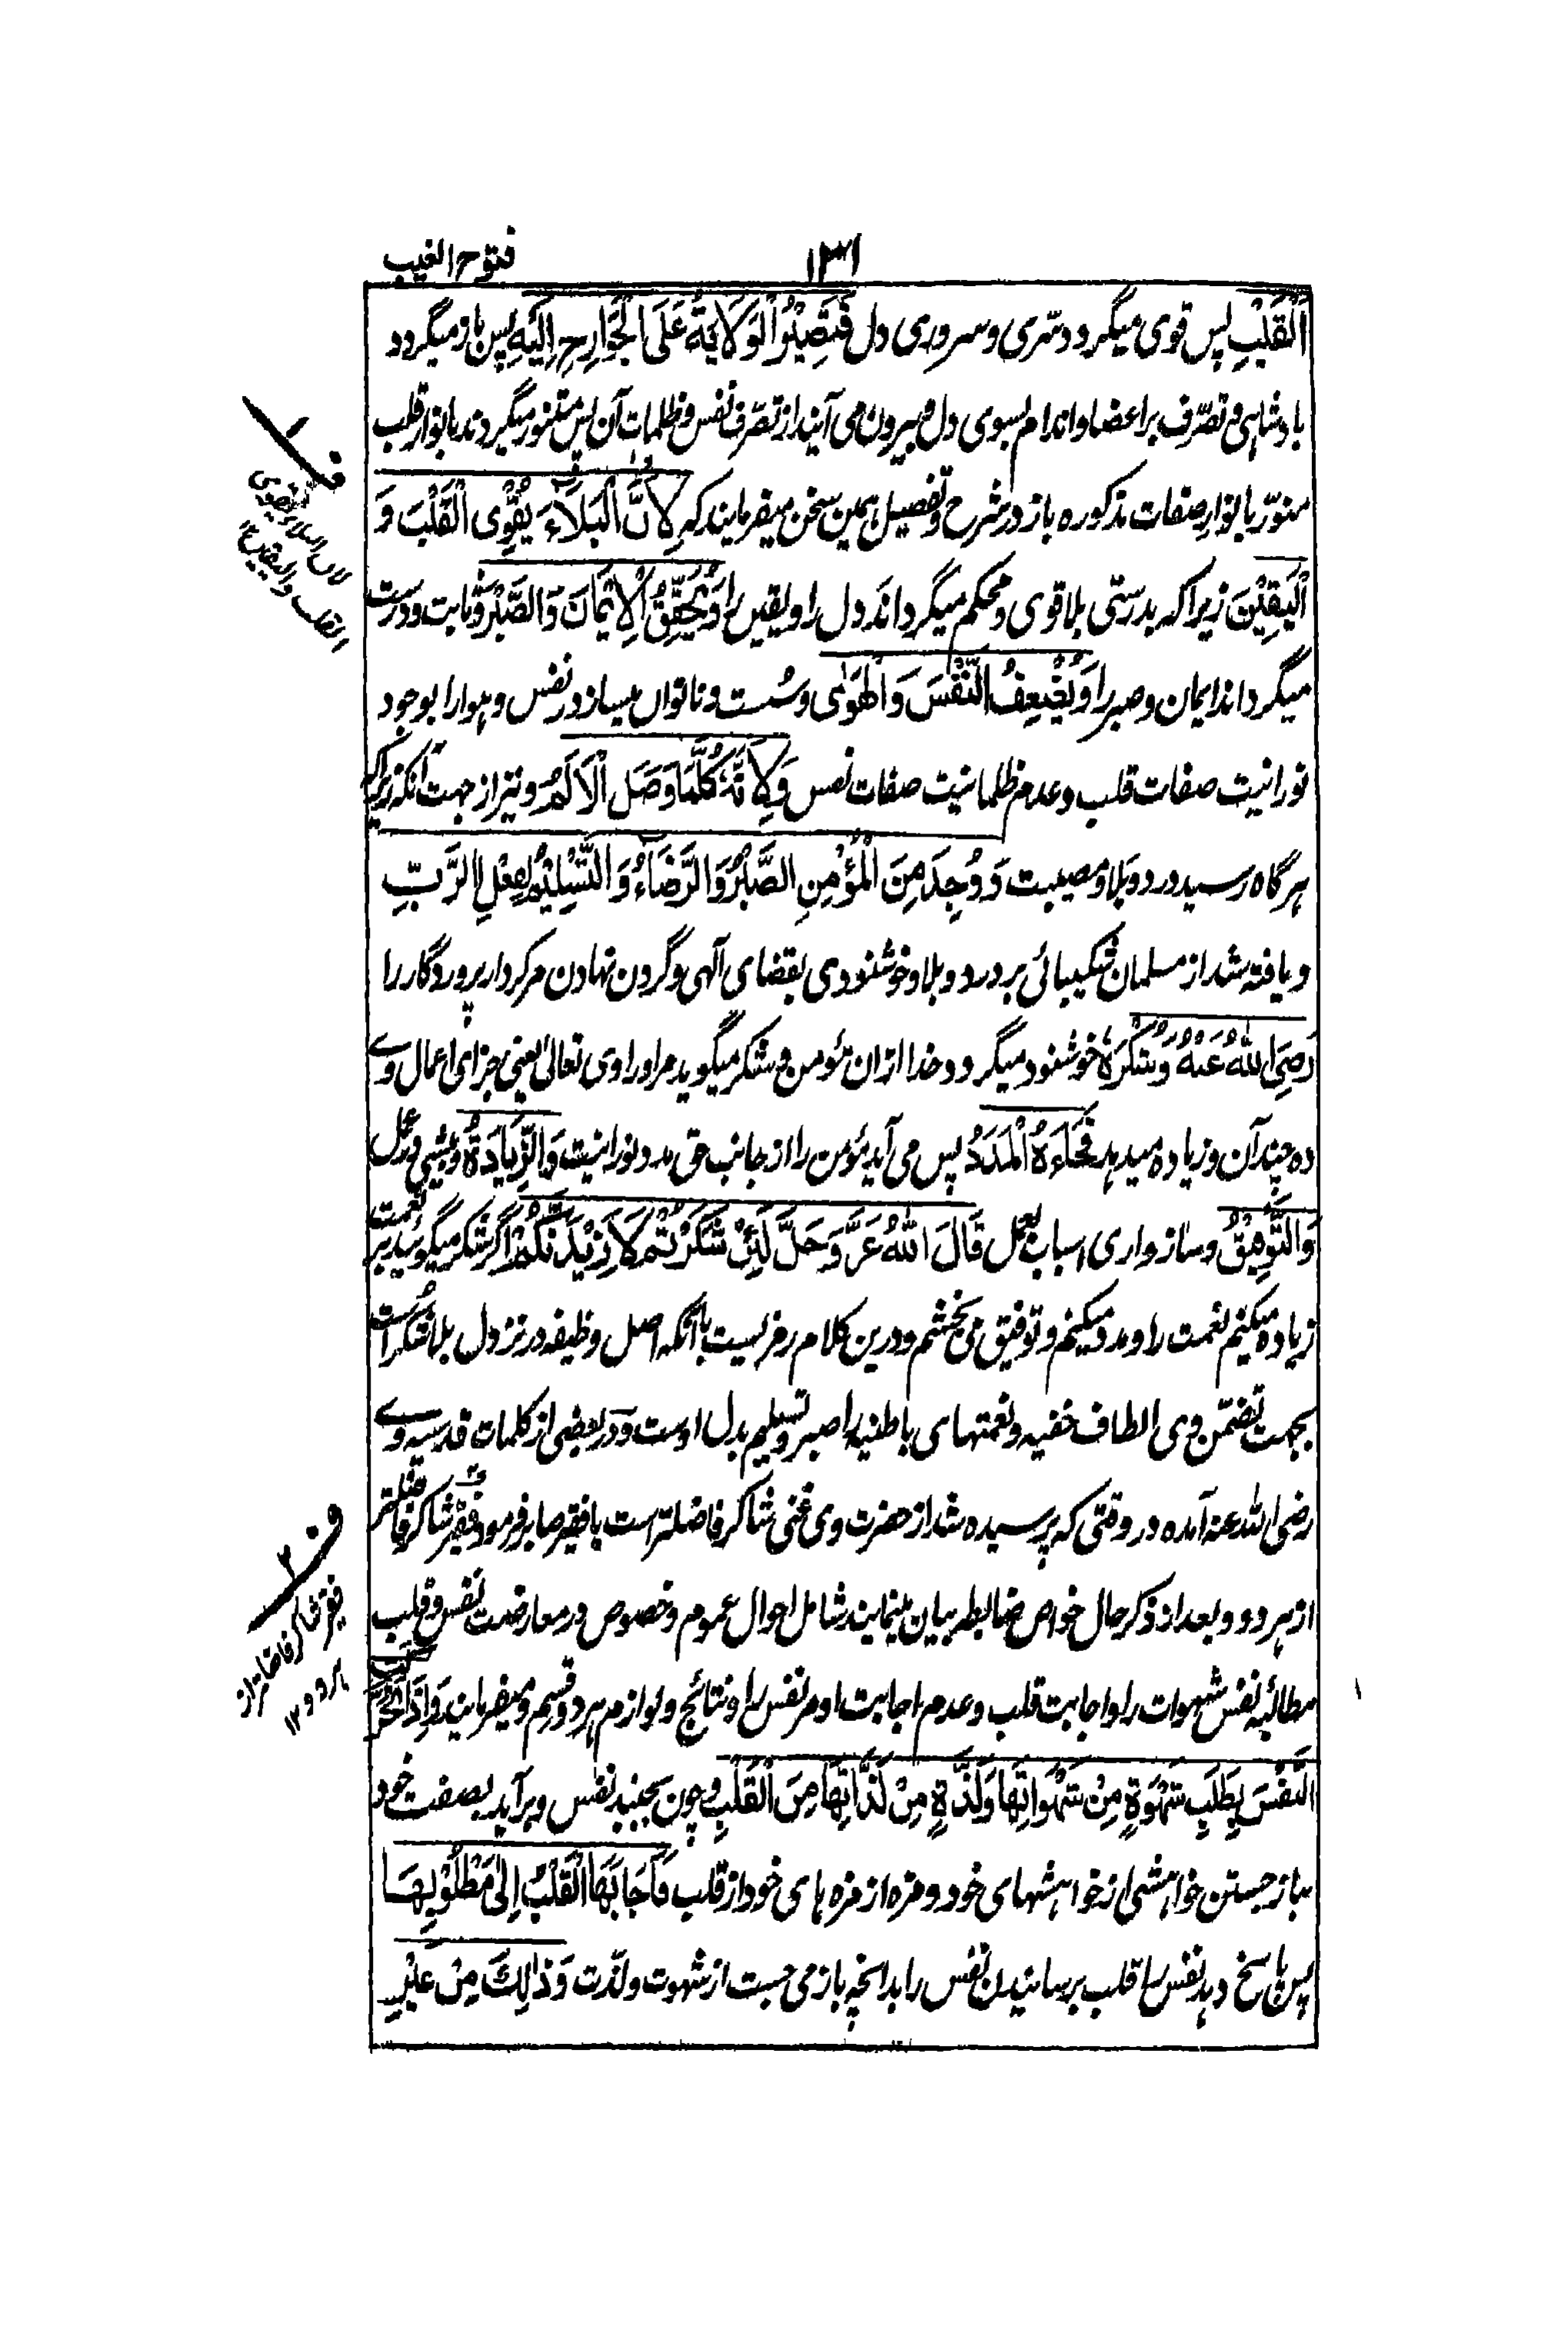 ۱۳۱ فتوح الغیب
اَلْقَلْبِ پس قوی میگردد سری و سروری دل فَتَصِیْرُ الْوَلَایَةُ عَلَی الْجَوَارِحِ اِلَیْهِ پس باز میگردد
بادشاهی و تصرّف بر اعضا و اندام بسوی دل و بیرون می آیند از تصرّف نفس و ظلمات آن پس متنور میگردند بانوار قلب
منوّر بانوارِ صفات مذکوره باز در شرح و تفصیل همین سخن میفرمایند که لِاَنَّ الْبَلَاۤءَ یُقَوِّی الْقَلْبَ وَ
الْیَقِیْنَ زیرا که بدرستی بلا قوی و محکم میگرداند دل را و یقین را وَیُحَقِّقُ الْاِیْمَانَ وَالصَّبْرَ و ثابت و درست
میگرداند ایمان و صبر را وَیُضْعِفُ النَّفْسَ وَالْهَوٰی و سُست و ناتواں میسازد نفس و هوا را بوجود
نورانیت صفات قلب و عدم ظلمانیت صفات نفس وَلِاَنَّهٗ کُلَّمَا وَصَلَ الْاَلَمُ و نیز از جهت آنکه زیراکه
هرگاه رسید درد و بلا و مصیبت وَ وُجِدَ مِنَ الْمُؤْمِنِ الصَّبْرُ وَالرَّضَاۤءُ وَالتَّسْلِیْمُ لِفِعْلِ الرَّبِّ
و یافته شد از مسلمان شکیبائی بر درد و بلا و خوشنودی بقضای آلهی و گردن نهادن مر کردار پروردگار را
رَضِیَ اللهُ عَنْهُ وَشَکَرَهٗ خوشنود میگردد خدا ازان مؤمن و شکر میگوید مر او را وی تعالیٰ یعنی جزای اعمال وے
ده چند آن و زیاده میدهد فَجَاۤءَهُ الْمَدَدُ پس می آید مؤمن را از جانب حق مدد نورانیت وَالزِّیَادَةُ و بیشی در عمل
وَالتَّوْفِیْقُ و سازواری اسباب عمل قَالَ اللهُ عَزَّ وَجَلَّ لَئِنْ شَکَرْتُمْ لَاَزِیْدَنَّکُمْ اگر شکر میگوئید بر نعمت
زیاده میکنم نعمت را و مدد میکنم و توفیق می بخشم و درین کلام رمزیست بآنکه اصل وظیفه در نزد دل بلا شکر است
بجهت تضمّن وی الطاف خفیه و نعمتهای باطنیه را صبر و تسلیم بدل اوست و در بعضی از کلمات قدسیه وے
رضی الله عنه آمده در وقتی که پرسیده شد از حضرت وی غنی شاکر فاضلتر است یا فقیر صابر فرمود فقیر شاکر فاضلتر
از هر دو و بعد از ذکر حال خواص ضابطه بیان مینمایند شامل احوال عموم و خصوص در معارضت نفس و قلب
مطالبهٔ نفس شهوات را و اجابت قلب و عدم اجابت او مر نفس را و نتائج و لوازم هر دو قسم و میفرمایند وَاِذَا تَحَرَّکَتِ
النَّفْسُ بِطَلَبِ شَهْوَةٍ مِنْ شَهْوَاتِهَا وَلَذَّةٍ مِنْ لَذَّاتِهَا مِنَ الْقَلْبِ و چون بجنبد نفس و برآید بصفت خود
بباز جستن خواهشی از خواهشهای خود و مزه از مزه های خود از قلب فَاَجَابَهَا الْقَلْبُ اِلٰی مَطْلُوْبِهَا
پس پاسخ دهد نفس را قلب برسانیدن نفس را بدانچه باز می جست از شهوت و لذّت وَذٰلِکَ مِنْ غَیْرِ
ف ۱
لان البلاء یقوی
القلب والیقین ۱۲
ف ۲
فقیر شاکر فاضلتر از
هر دو ۱۲